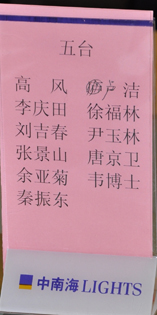 五台
高 风 卢 洁
李庆田 徐福林
刘吉春 尹玉林
张景山 唐京卫
余亚菊 韦博士
秦振东
中南海 LIGHTS